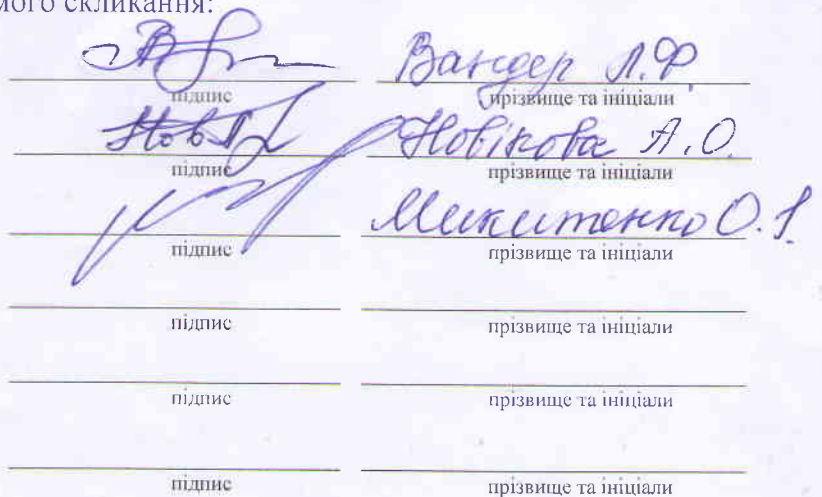 мого скликання:
Вандер Л.Ф.
підпис прізвище та ініціали
Нов Новікова А.О.
підпис прізвище та ініціали
Микитенко О.
підпис прізвище та ініціали
підпис прізвище та ініціали
підпис прізвище та ініціали
підпис прізвище та ініціали